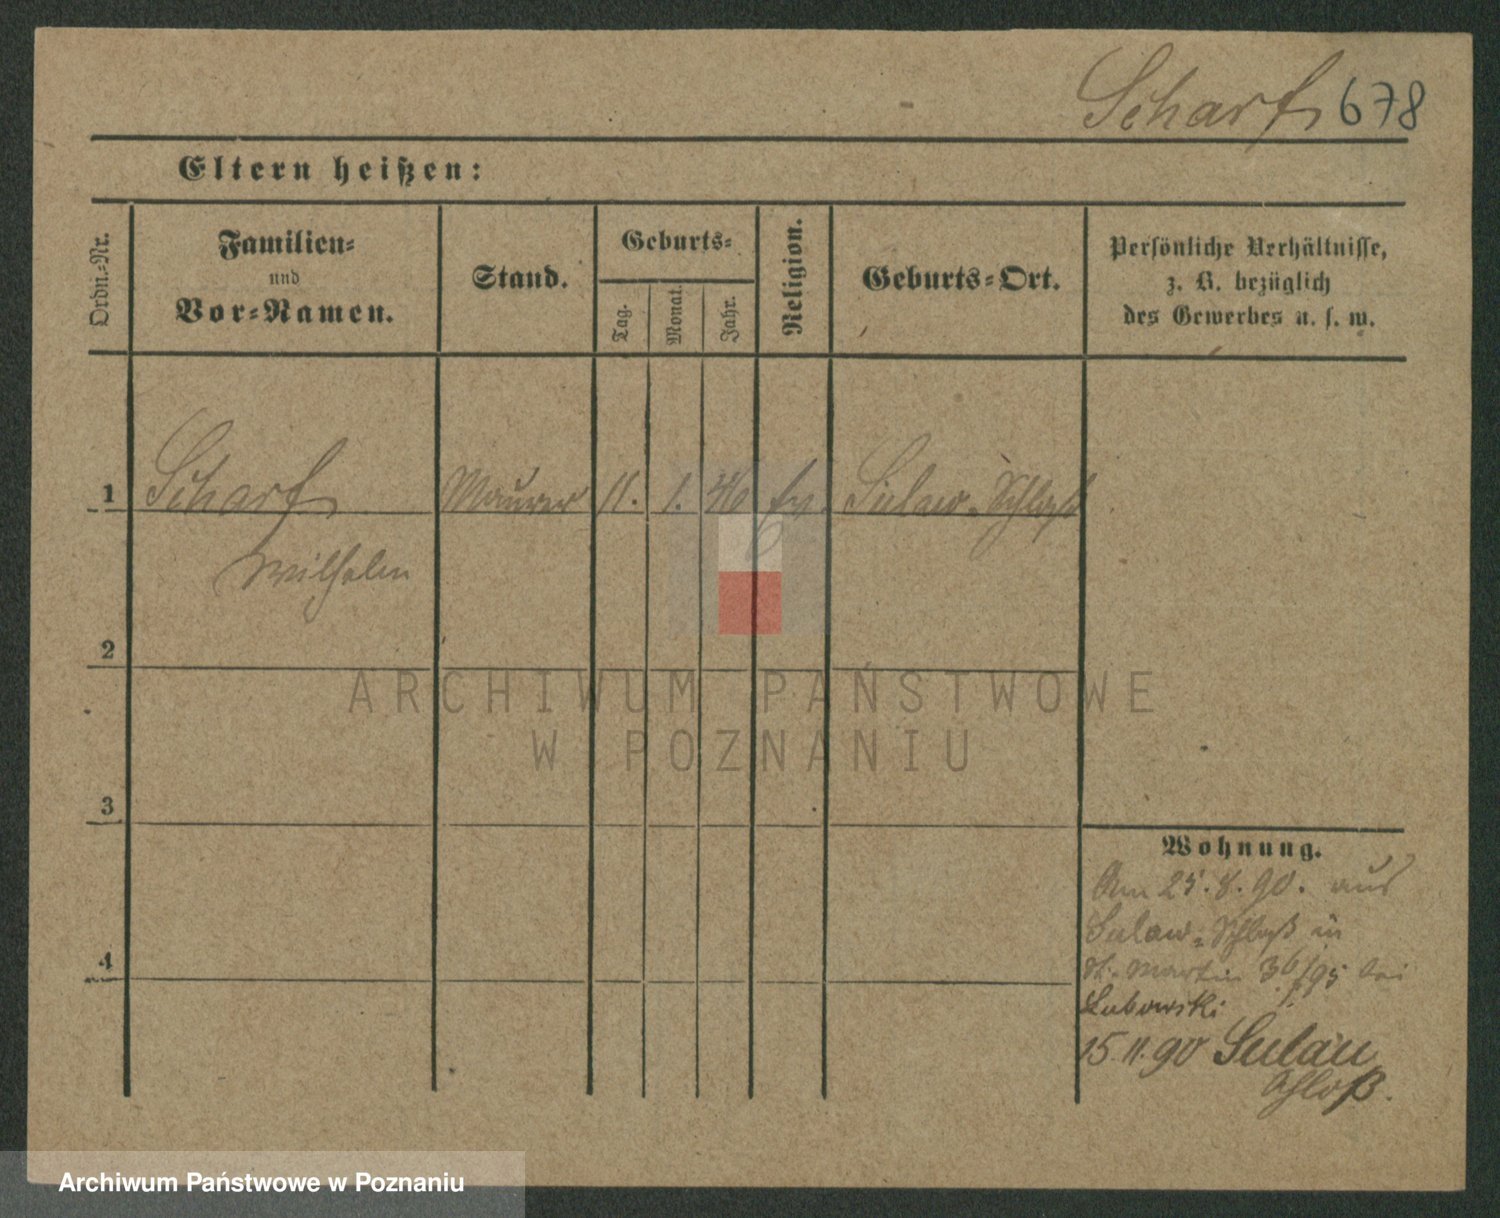 Scharf 678
Eltern heißen:
Ordn.-Nr.
Familien-
und
Vor-Namen.
Stand.
Geburts-
Tag.
Monat.
Jahr.
Religion.
Geburts-Ort.
Persönliche Verhältnisse,
z. B. bezüglich
des Gewerbes u. s. w.
1 Scharf Maurer 11. 1. 46 ev. Sulau-Schloß
Wilhelm
2
3
4
Wohnung.
Am 25.8.90. aus
Sulau-Schloß in
St. Martin bei
Lubowski
15.11.90 Sulau
Schloß.
ARCHIWUM PAŃSTWOWE
W POZNANIU
Archiwum Państwowe w Poznaniu